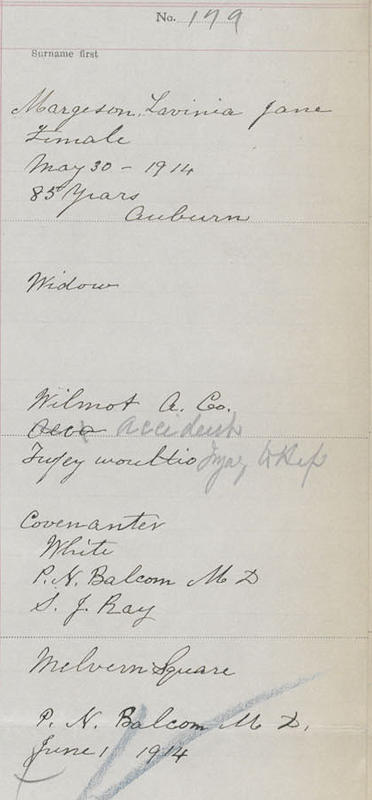 No. 179
Surname first
Margeson, Lavinia Jane
Female
May 30 - 1914
85 Years
Auburn
Widow
Wilmot A. Co.
Accident
Injury
Covenanter
White
P. N. Balcom M D
S. J. Ray
Melvern Square
P. N. Balcom M D.
June 1 1914